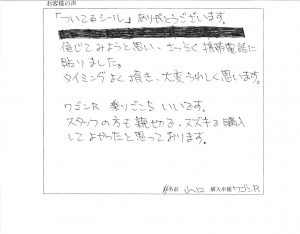 お客様の声
「ついてるシール」ありがとうございます。
信じてみようと思い、さっそく携帯電話に
貼りました。
タイミングよく頂き、大変うれしく思います。
ワゴンR 乗りごこち いいです。
スタッフの方も親切な、スズキを購入
してよかったと思っております。
お名前 山口 購入車種 ワゴンR